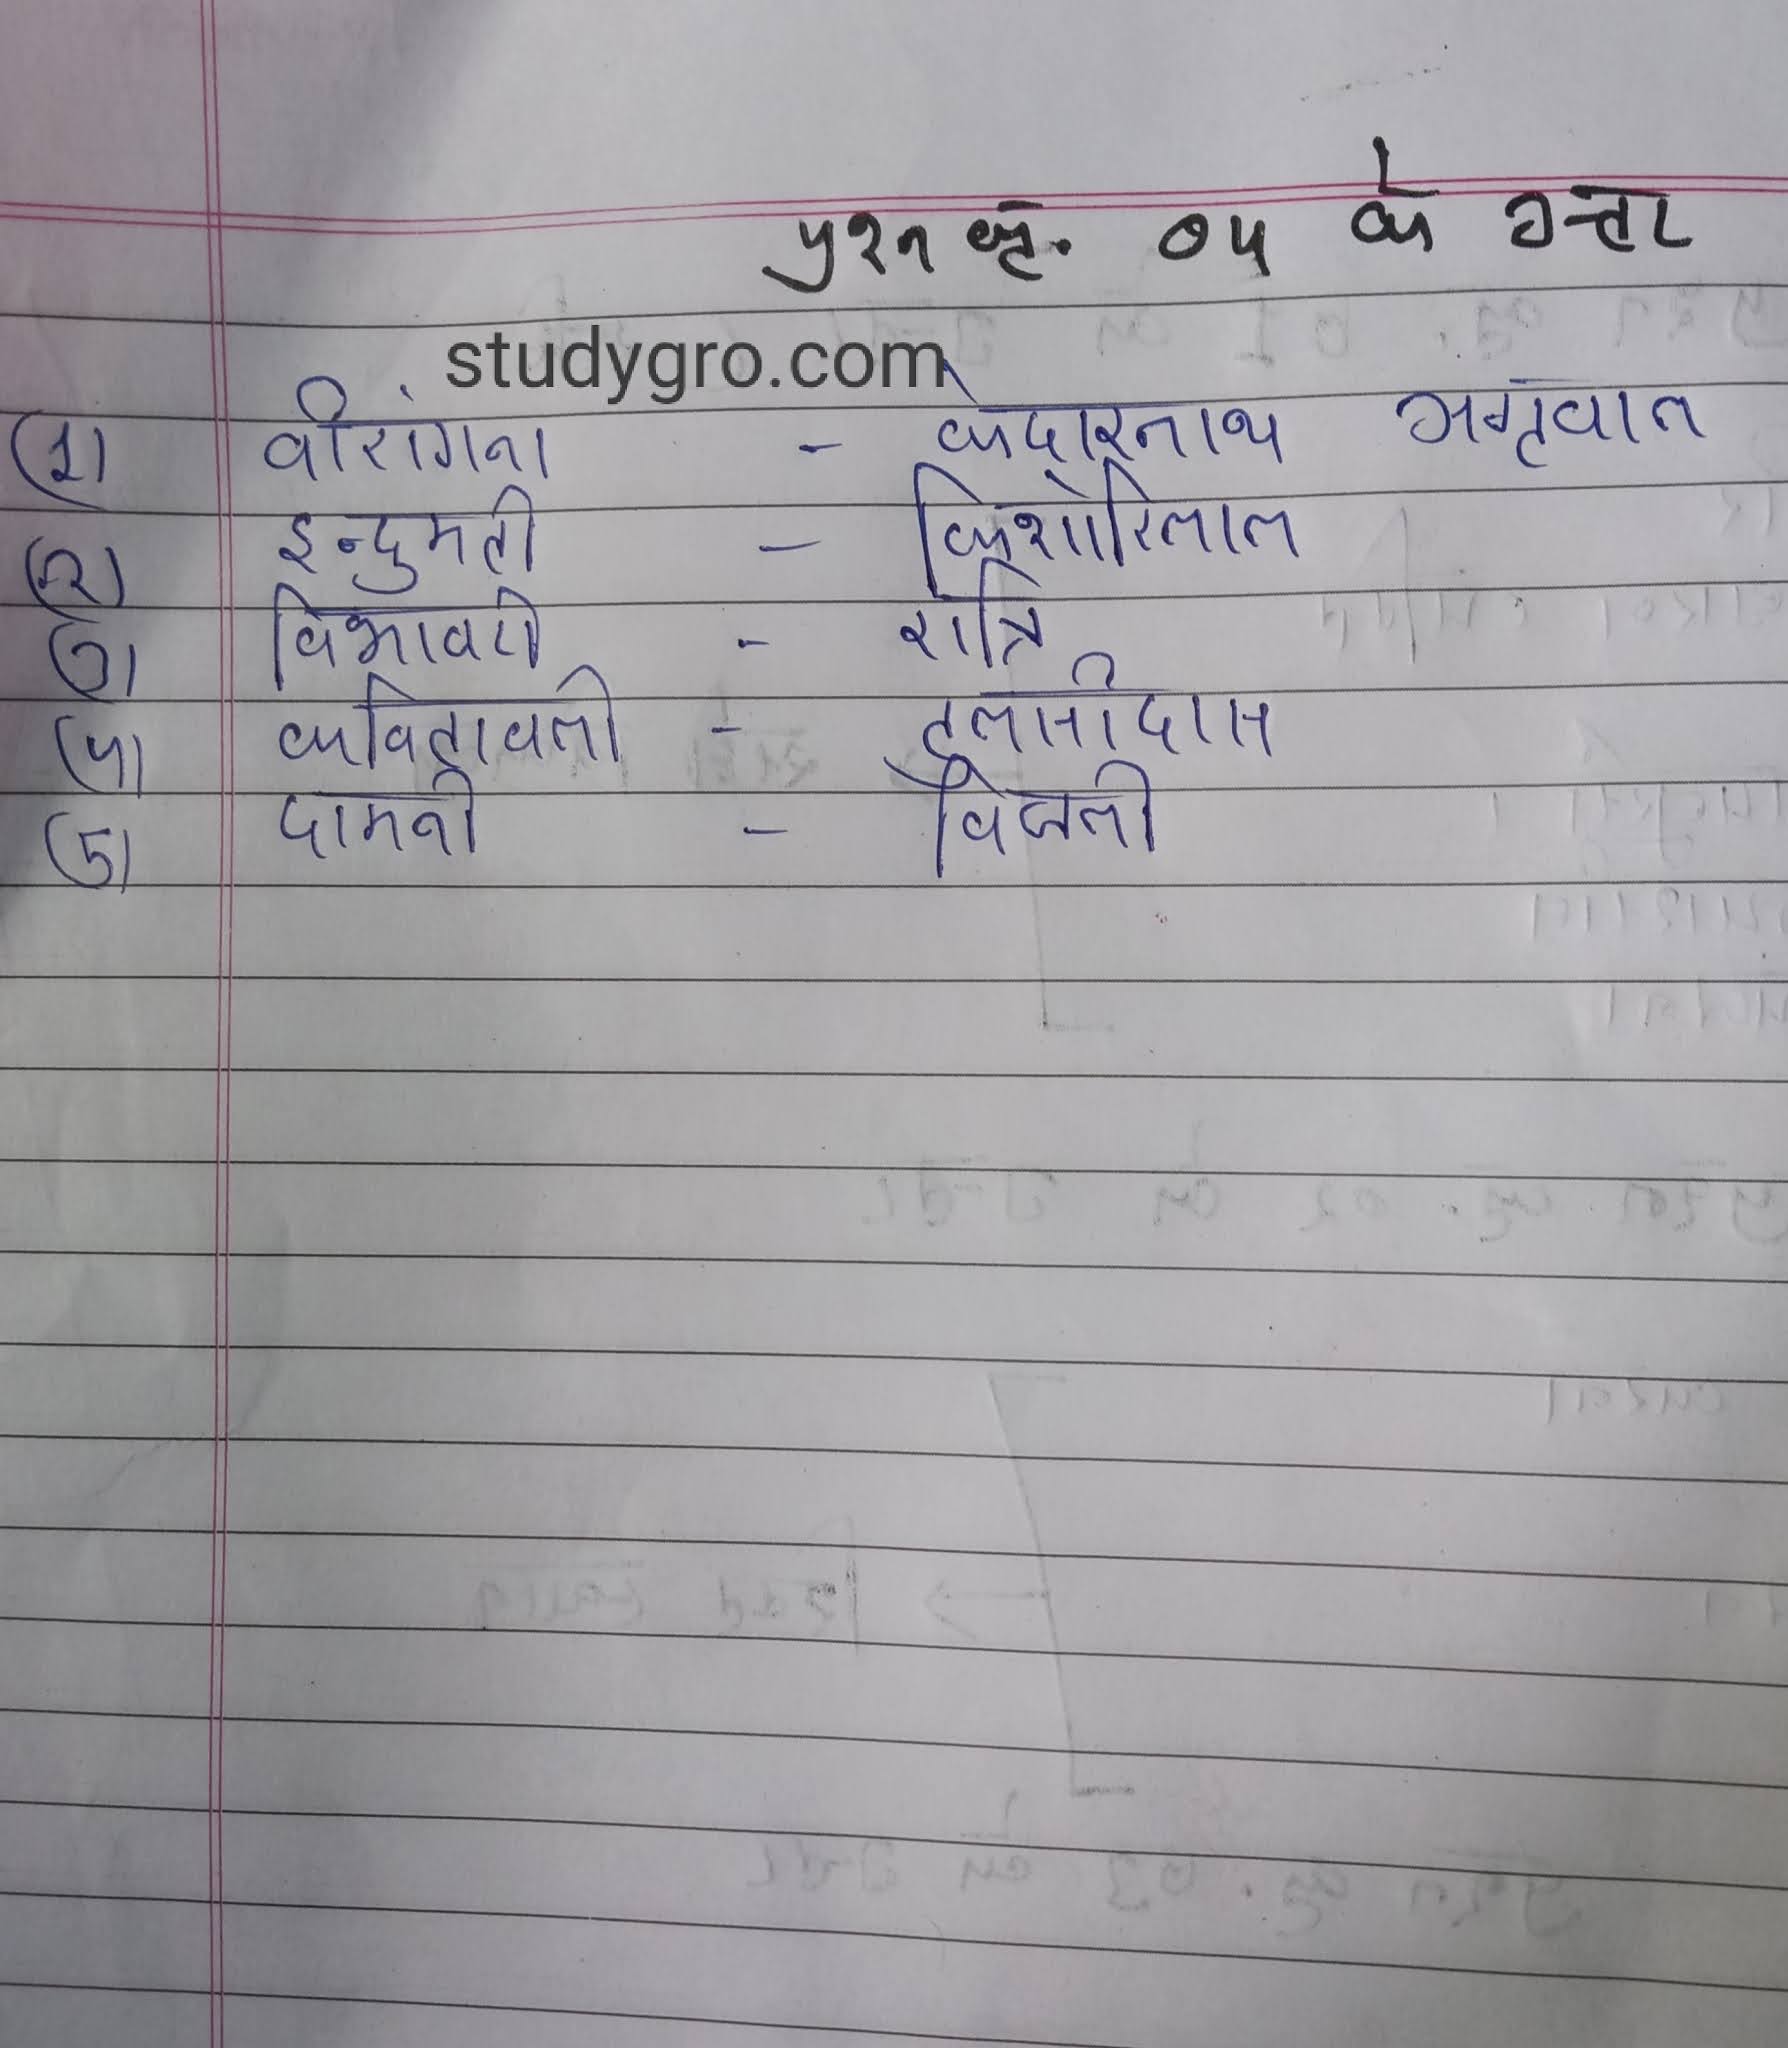 प्रश्न क्र. ०५ के उत्तर
studygro.com
(१) वीरांगना - केदारनाथ अग्रवाल
(२) इन्दुमती - किशोरिलाल
(३) विभावरी - रात्रि
(४) कवितावली - तुलसीदास
(5) दामनी - बिजली